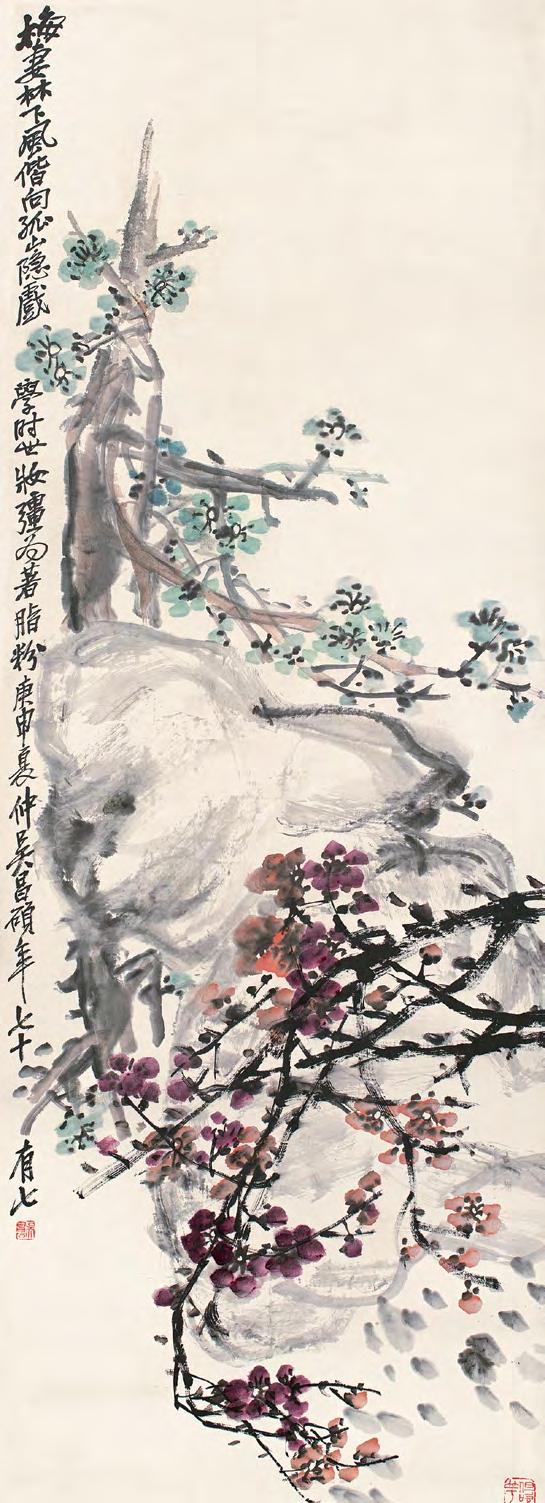 梅妻林下風偕向孤山隐戲學时世妝彊为著脂粉庚申夏仲吴昌碩年七十有七